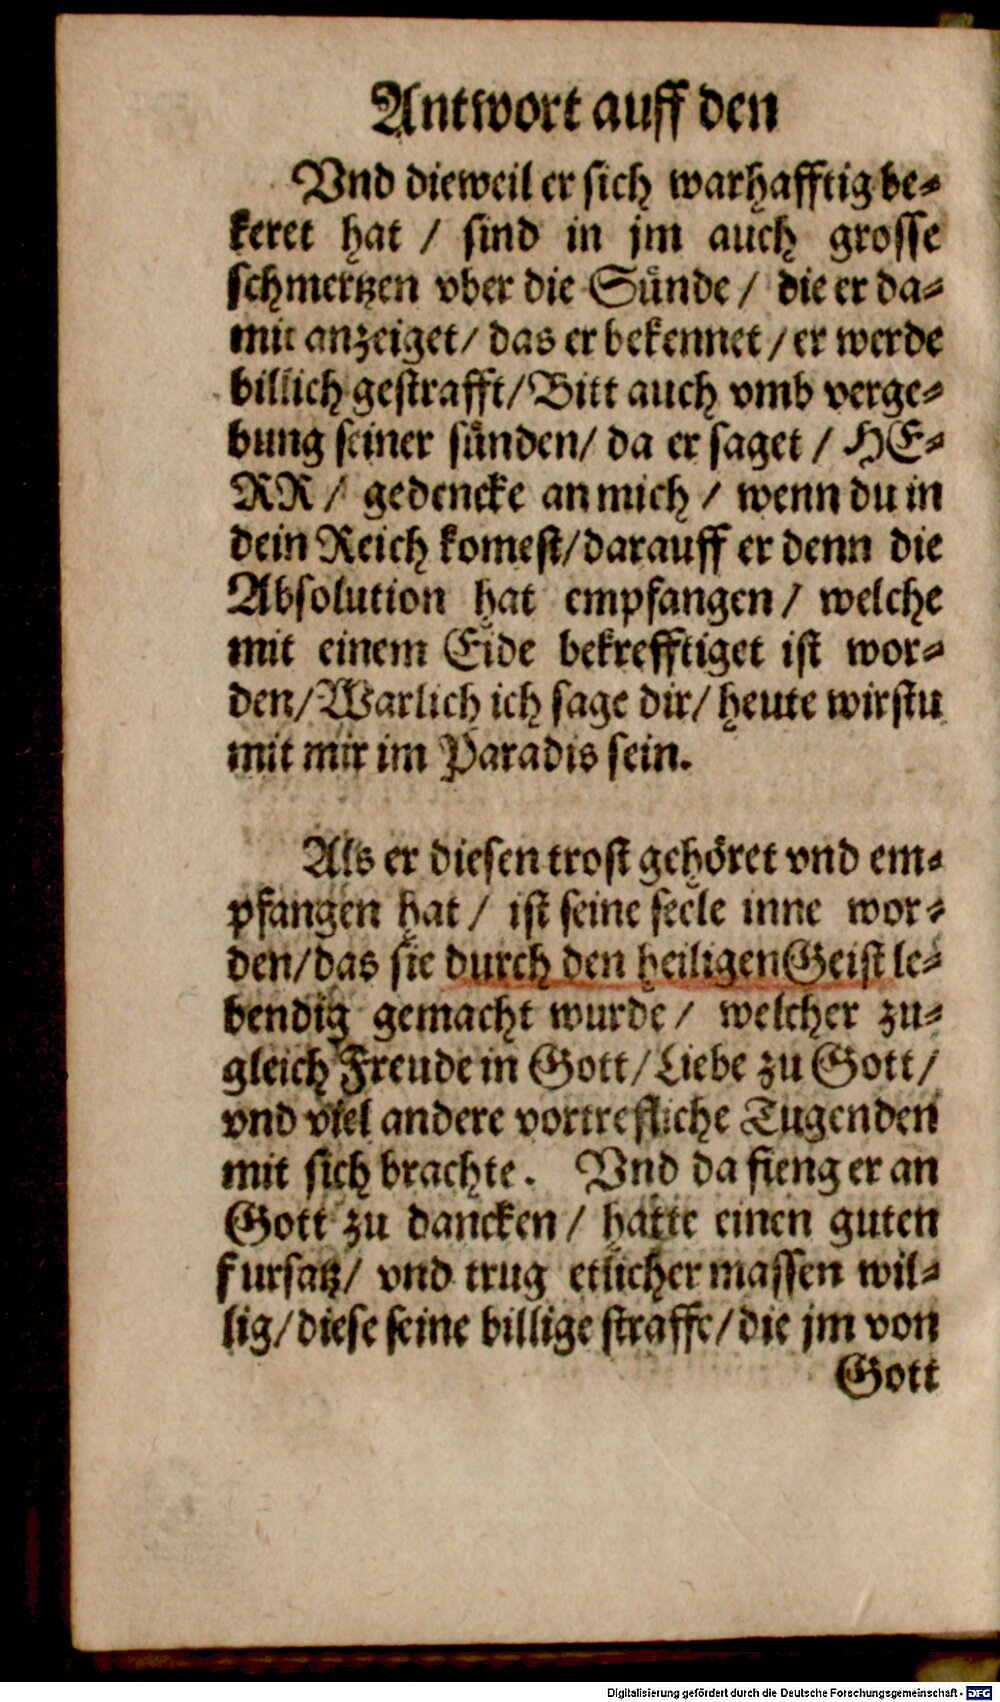 Antwort auff den
Vnd dieweil er sich warhafftig be⸗
keret hat / sind in jm auch grosse
schmertzen vber die Sünde / die er da⸗
mit anzeiget / das er bekennet / er werde
billich gestrafft / Bitt auch vmb verge⸗
bung seiner sünden / da er saget / HE⸗
RR / gedencke an mich / wenn du in
dein Reich komest / darauff er denn die
Absolution hat empfangen / welche
mit einem Eide bekrefftiget ist wor⸗
den / Warlich ich sage dir / heute wirstu
mit mir im Paradis sein.
Als er diesen trost gehöret vnd em⸗
pfangen hat / ist seine seele inne wor⸗
den / das sie durch den heiligen Geist le⸗
bendig gemacht wurde / welcher zu⸗
gleich Freude in Gott / Liebe zu Gott /
vnd viel andere vortrefliche Tugenden
mit sich brachte. Vnd da fieng er an
Gott zu dancken / hatte einen guten
fursatz / vnd trug etlicher massen wil⸗
lig / diese seine billige straffe / die jm von
Gott
Digitalisierung gefördert durch die Deutsche Forschungsgemeinschaft - DFG